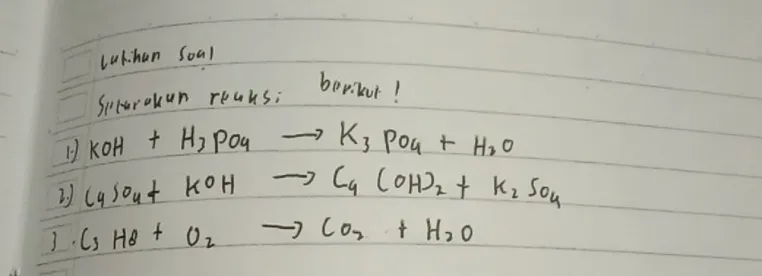 Latihan Soal
Setarakan reaksi berikut!
1.) KOH + H3PO4 → K3PO4 + H2O
2.) CaSO4 + KOH → Ca(OH)2 + K2SO4
3. C3H8 + O2 → CO2 + H2O